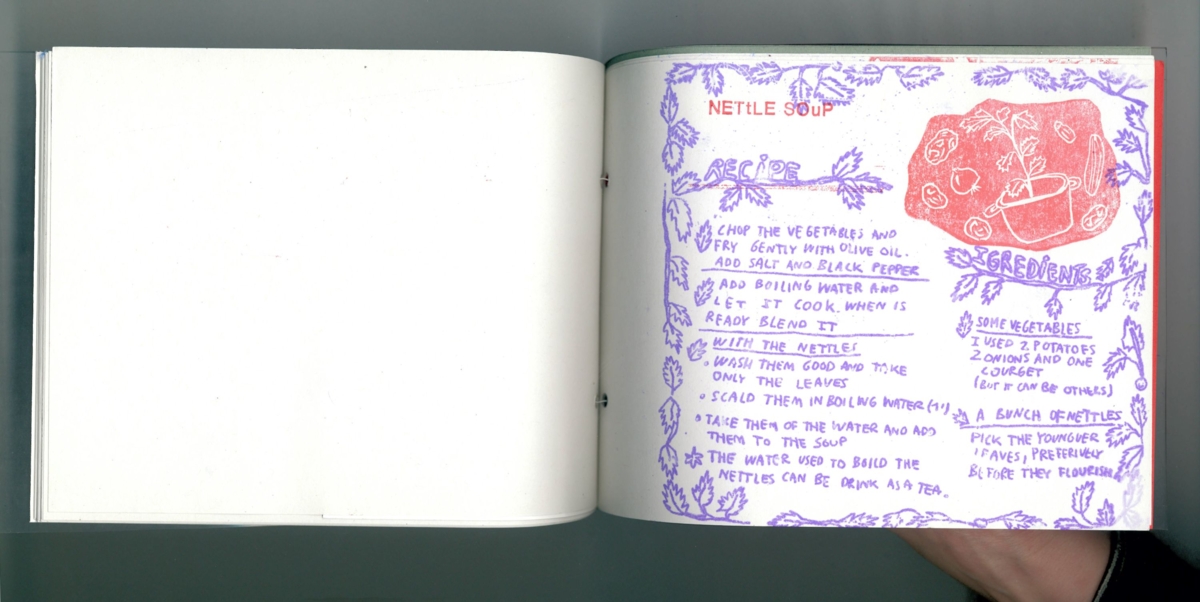 NETtLE SOuP
RECiPE
CHOP THE VEGETABLES AND
FRY GENTLY WITH OLIVE OIL.
ADD SALT AND BLACK PEPPER
ADD BOILING WATER AND
LET IT COOK. WHEN IS
READY BLEND IT
WITH THE NETTLES
• WASH THEM GOOD AND TAKE
ONLY THE LEAVES
• SCALD THEM IN BOILING WATER (1')
• TAKE THEM OF THE WATER AND ADD
THEM TO THE SOUP
THE WATER USED TO BOILD THE
NETTLES CAN BE DRINK AS A TEA.
IGREDiENTS
SOME VEGETABLES
I USED 2 POTATOES
2 ONIONS AND ONE
COURGET
(BUT IT CAN BE OTHERS)
A BUNCH OF NETTLES
PICK THE YOUNGUER
lEAVES, PREFERIVELY
BEFORE THEY FLOURISH